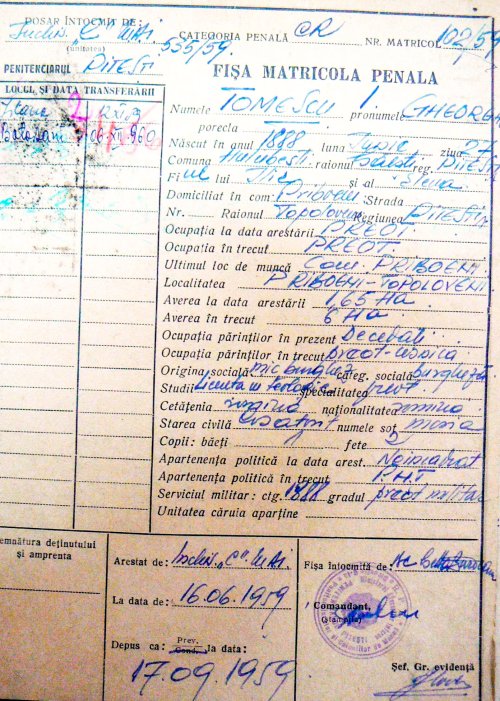 DOSAR ÎNTOCMIT DE:
Închis. „C" M.Ai.
(unitatea)
555/59.
CATEGORIA PENALĂ CR
NR. MATRICOL
PENITENCIARUL PITEȘTI
FIȘA MATRICOLA PENALA
LOCUL ȘI DATA TRANSFERĂRII
Numele TOMESCU I. pronumele GHEORGHE
porecla
Născut în anul 1888 luna Iunie ziua 27
Comuna raionul Găești reg. PITEȘTI
Fiul lui Ilie și al Elena
Domiciliat în com. Priboeni Strada
Nr. Raionul Topoloveni Regiunea PITEȘTI
Ocupația la data arestării PREOT
Ocupația în trecut PREOT.
Ultimul loc de muncă Com. PRIBOENI
Localitatea PRIBOENI-TOPOLOVENI
Averea la data arestării 1,65 Ha
Averea în trecut 6 Ha
Ocupația părinților în prezent Decedați
Ocupația părinților în trecut preot-casnica
Origina socială mic burghez categ. socială burgheză
Studii Licența în teologie specialitatea preot
Cetățenia romina naționalitatea romina
Starea civilă căsătorit numele soț Maria
Copii: băeți fete 2
Apartenența politică la data arest. Neîncadrat
Apartenența politică în trecut P.N.Ț.
Serviciul militar: ctg. 1888 gradul preot militar
Unitatea căruia aparține
Semnătura deținutului
și amprenta
Arestat de: Închis. „C" M.Ai.
La data de: 16.06.1959
Prev.
Depus ca: Cond. la data:
17.09.1959
Fișa întocmită de:
Comandant,
(ștampila)
Șef. Gr. evidență